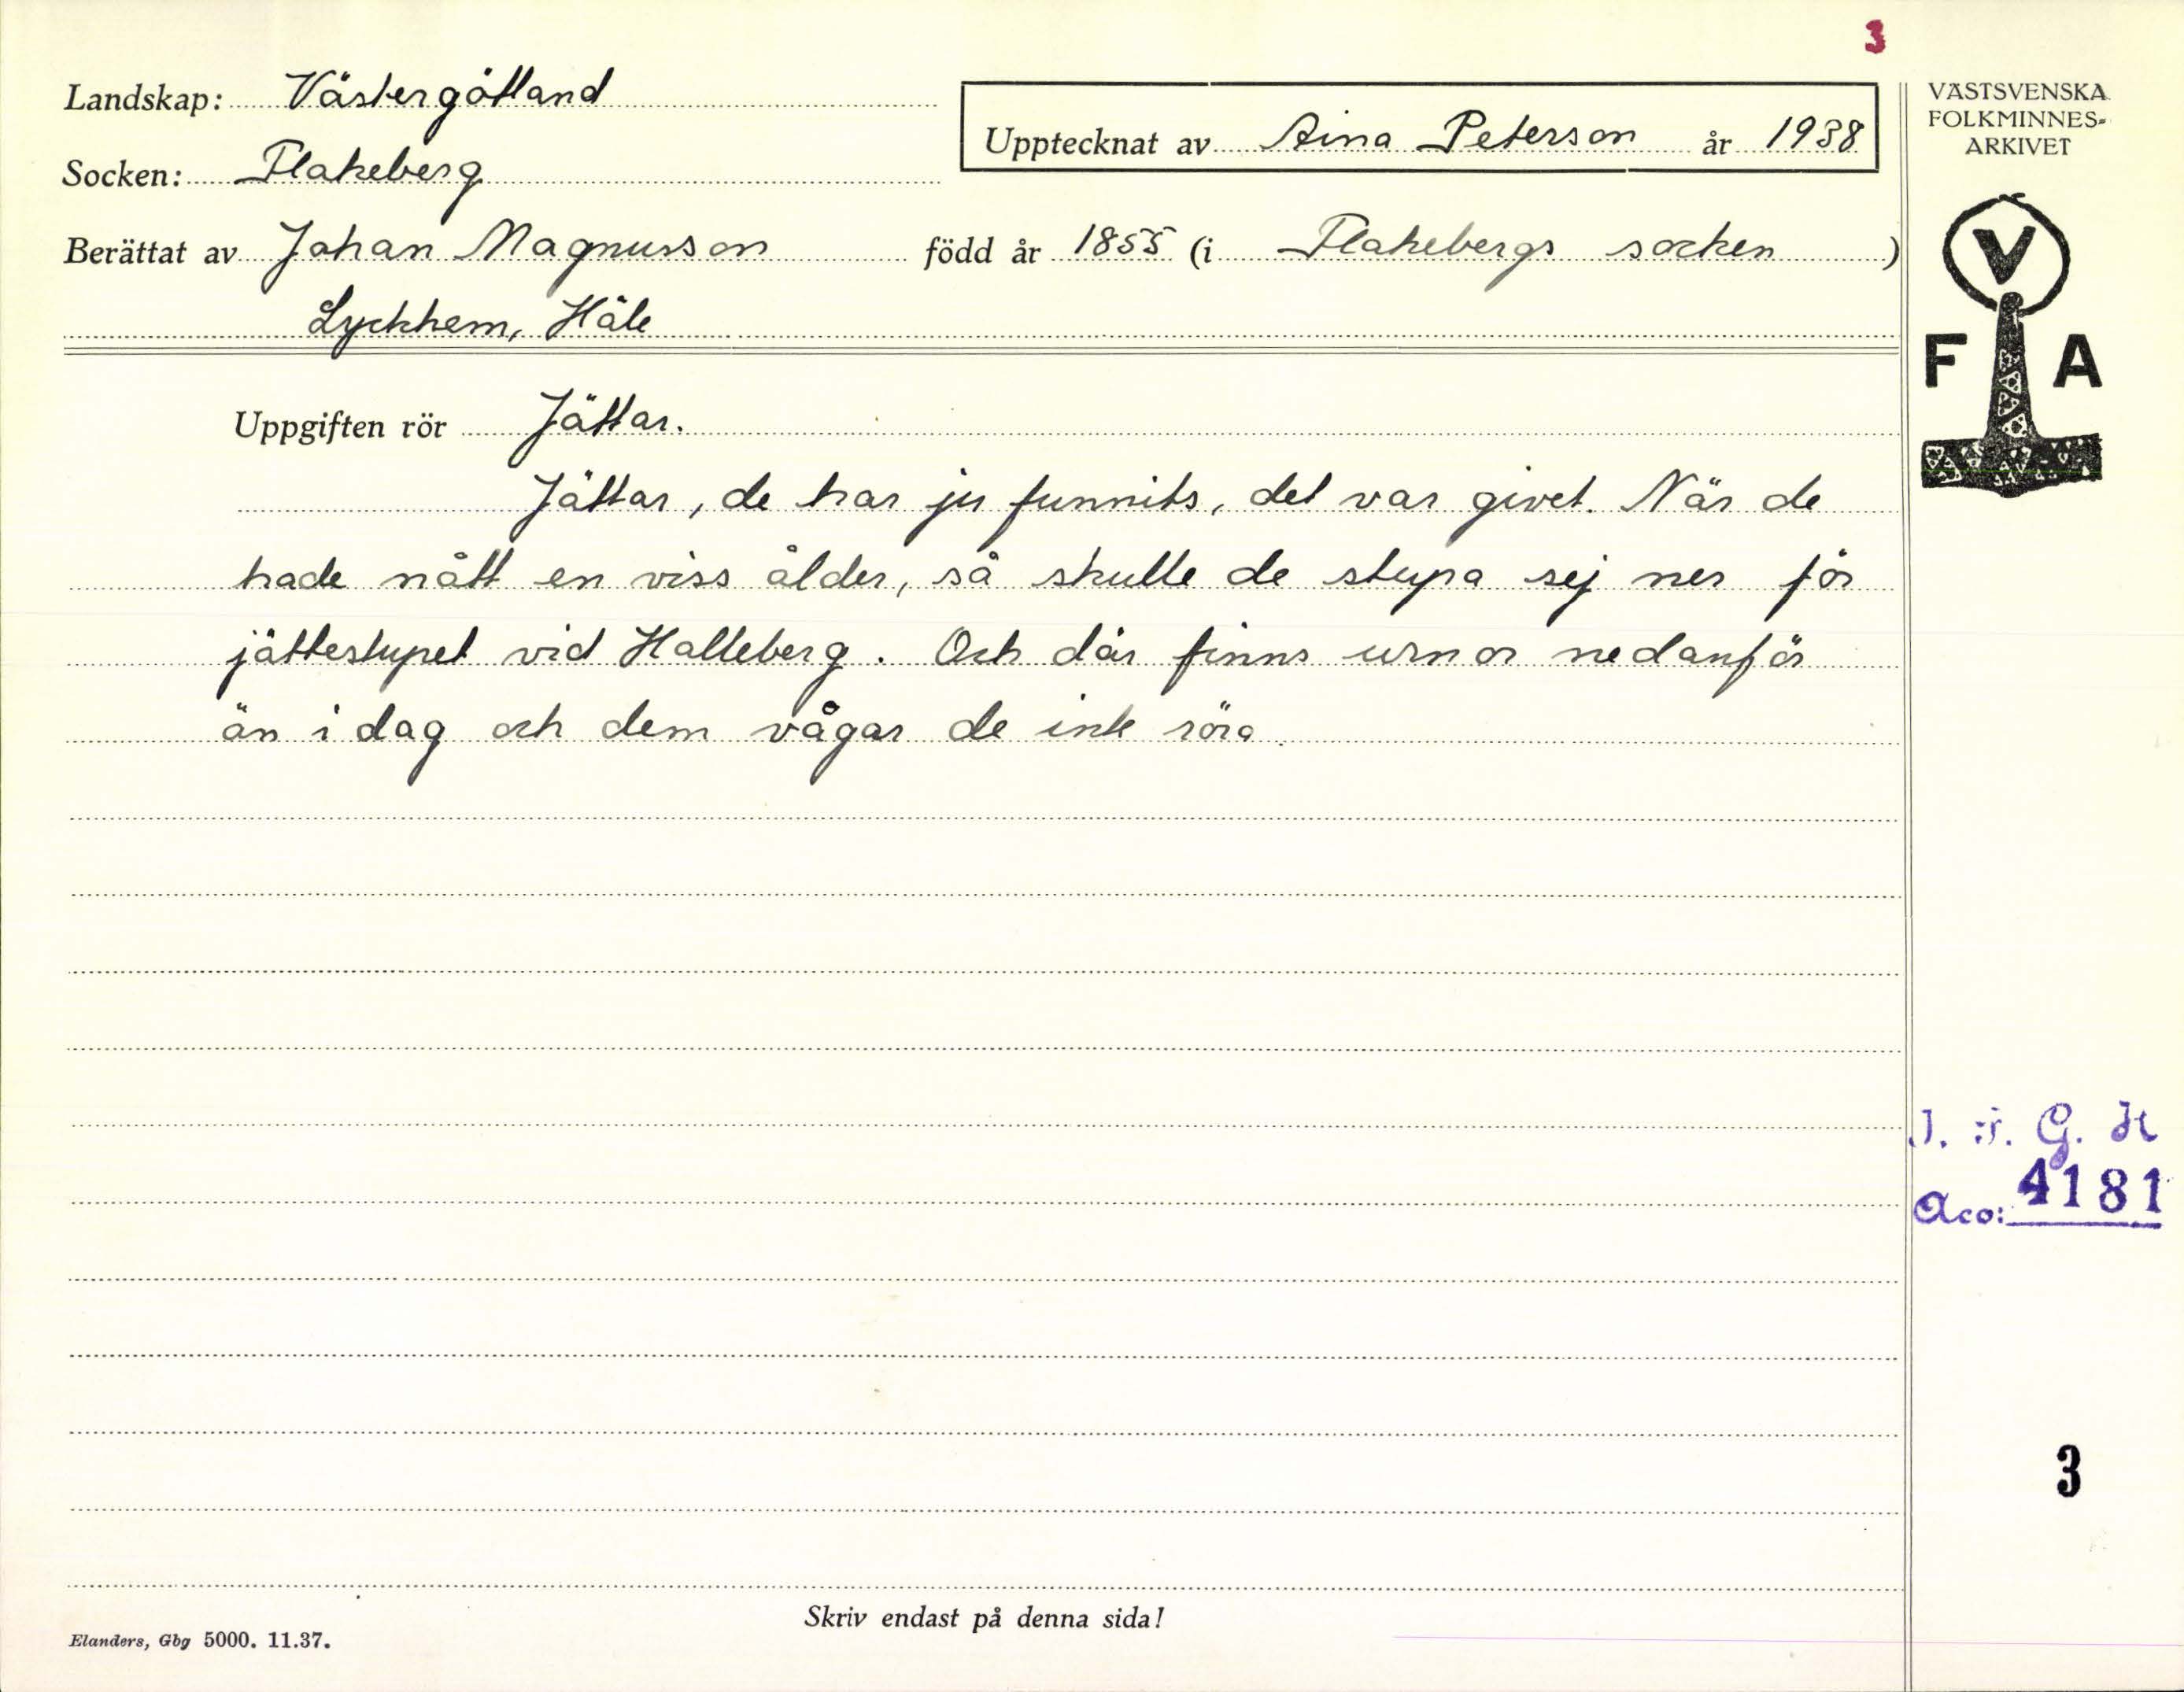 3
Landskap: Västergötland
Upptecknat av Aina Peterson år 1938
Socken: Flakeberg
Berättat av Johan Magnusson född år 1855 (i Flakebergs socken )
Lyckhem, Häle
VÄSTSVENSKA
FOLKMINNES-
ARKIVET
V
F A
Uppgiften rör Jättar.
Jättar, de har ju funnits, det var givet. När de
hade nått en viss ålder, så skulle de stupa sej ner för
jättestupet vid Halleberg. Och där finns urnor nedanför
än i dag och dem vågar de inte röra.
I. F. G. H
Acc: 4181
3
Skriv endast på denna sida!
Elanders, Gbg 5000. 11.37.